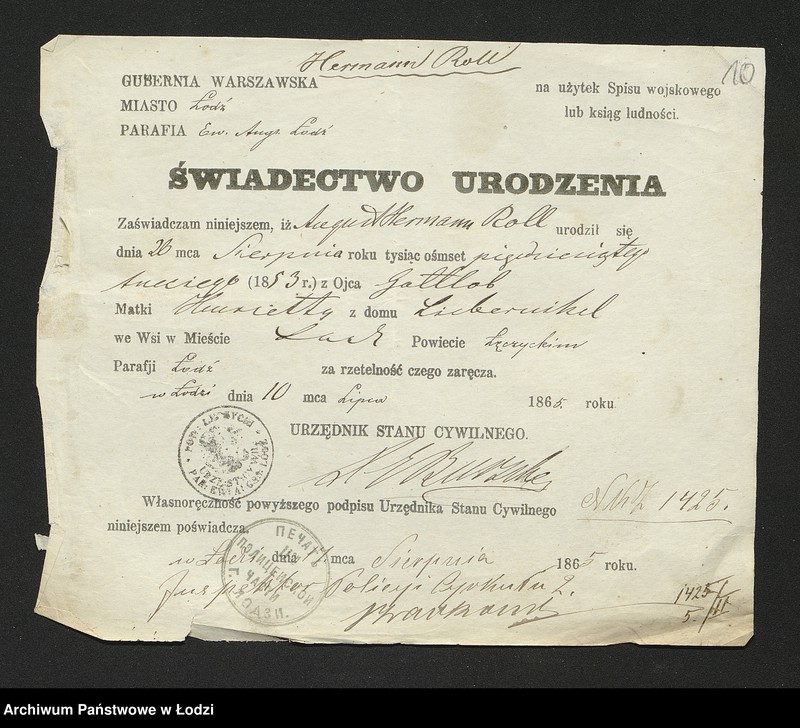 Hermann Roll
10
GUBERNIA WARSZAWSKA
MIASTO Łodź
PARAFIA Ew. Augs. Łodź
na użytek Spisu wojskowego
lub ksiąg ludności.
ŚWIADECTWO URODZENIA
Zaświadczam niniejszem, iż August Hermann Roll urodził się
dnia 20 mca Sierpnia roku tysiąc ośmset pięćdziesiątego
trzeciego (1853 r.) z Ojca Gottlob
Matki Henrietty z domu Liebernikel
we Wsi w Mieście Łodzi Powiecie Łęczyckim
Parafji Łodź za rzetelność czego zaręcza.
w Łodzi dnia 10 mca Lipca 1865 roku
URZĘDNIK STANU CYWILNEGO.
POW: ŁĘCZYCKI
URZ: ST: CYW:
PAR: EWAN: AUGS: ŁODZI
Własnoręczność powyższego podpisu Urzędnika Stanu Cywilnego
1425.
niniejszem poświadcza.
ПЕЧАТЬ
ПОЛИЦЕЙСКОЙ
ЧАСТИ
Г. ЛОДЗИ.
w Łodzi dnia mca Sierpnia 1865 roku.
Inspektor Policyi Cyrkułu 2.
1425/II
5.
Archiwum Państwowe w Łodzi